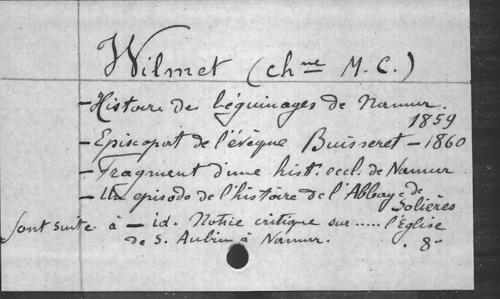 Wilmet (chne M.C.)
- Histoire de béguinages de Namur.
1859
- Episcopat de l'évêque Buisseret - 1860
- Fragment d'une hist. eccl. de Namur
- Un épisode de l'histoire de l'Abbaye de
Solières
font suite à - id. Notice critique sur ..... l'Eglise
de S. Aubin à Namur. . 8°